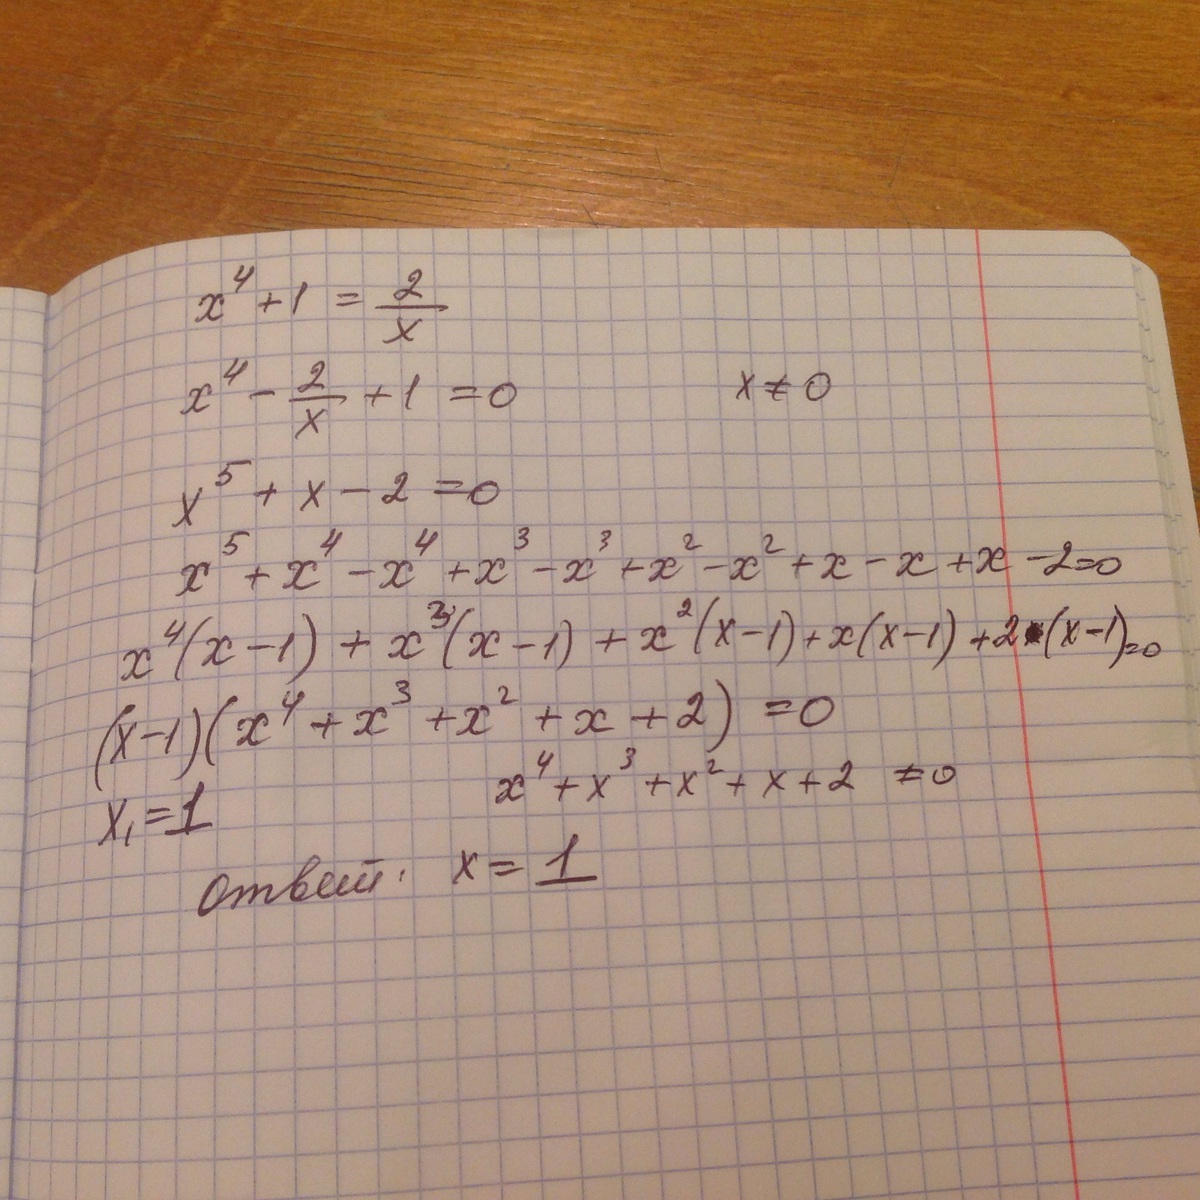 x⁴ + 1 = 2/x
x⁴ - 2/x + 1 = 0 x ≠ 0
x⁵ + x - 2 = 0
x⁵ + x⁴ - x⁴ + x³ - x³ + x² - x² + x - x + x - 2 = 0
x⁴(x - 1) + x³(x - 1) + x²(x - 1) + x(x - 1) + 2(x - 1) = 0
(x - 1)(x⁴ + x³ + x² + x + 2) = 0
x⁴ + x³ + x² + x + 2 ≠ 0
x₁ = 1
ответ: x = 1